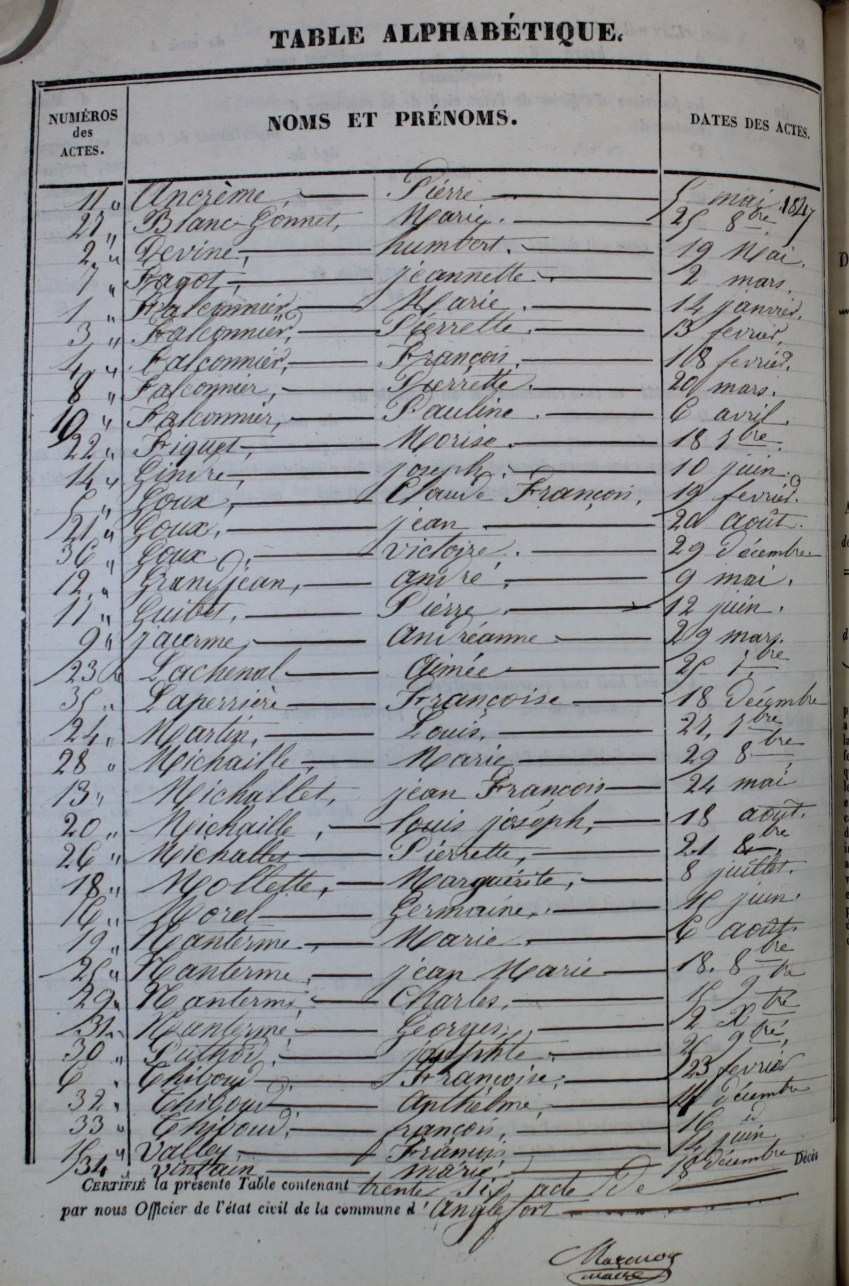 TABLE ALPHABÉTIQUE.
NUMÉROS des ACTES. NOMS ET PRÉNOMS. DATES DES ACTES.
11 " Ancrème, Pierre 5 mai 1847
27 " Blanc-Gonnet, Marie. 25 8bre
2 " Devine, humbert. 19 Mai.
7 " Fagot, jeannette. 2 mars.
1 " Falconnier, Marie. 14 janvier.
3 " Falconnier, Pierrette. 13 fevrier.
4 " Falconnier, François. 18 fevrier.
8 " Falconnier, Pierrette. 20 mars.
10 " Falconnier, Pauline. 6 avril.
22 " Fiquet, Morise. 18 7bre
14 " Gindre, joseph. 10 juin.
5 " Goux, Claude François, 19 fevrier.
21 " Goux. jean 20 août.
36 " Goux, victoire. 29 décembre
12 " Grandjean, andré, 9 mai.
Guibet, Pierre. 12 juin.
9 " jacerme, andréanne 29 mars.
23 Lachenal aimée 25 7bre
35 " Laperrière Françoise 18 Décembre
24 " Martin, Louis. 27, 7bre
28 " Michaille, Marie 29 8bre
13 " Michallet, jean François 24 mai
20 " Michaille, louis joséph, 18 août.
26 " Michallet Pierrette, 21 8bre
18 " Mollette, Marguérite, 8 juillet.
16 " Morel Germaine. juin.
19 " Nanterme, Marie. 6 août.
25 " Nanterme, jean Marie 18. 8bre
29 " Nanterme, Charles. 15 9bre
31 Nanterme, Georges, 2 Xbre
30 " Puthod, 25 9bre,
6 " Thiboud. Françoise, 23 fevrier
32 " Thiboud. anthelme, 11 décembre
33 " Thiboud. françois, 16 id
15 " Valley François 14 juin
34 " vintain marie 18 décembre
CERTIFIÉ la présente Table contenant trente Six acte De Décès
par nous Officier de l'état civil de la commune d'Anglefort
maire